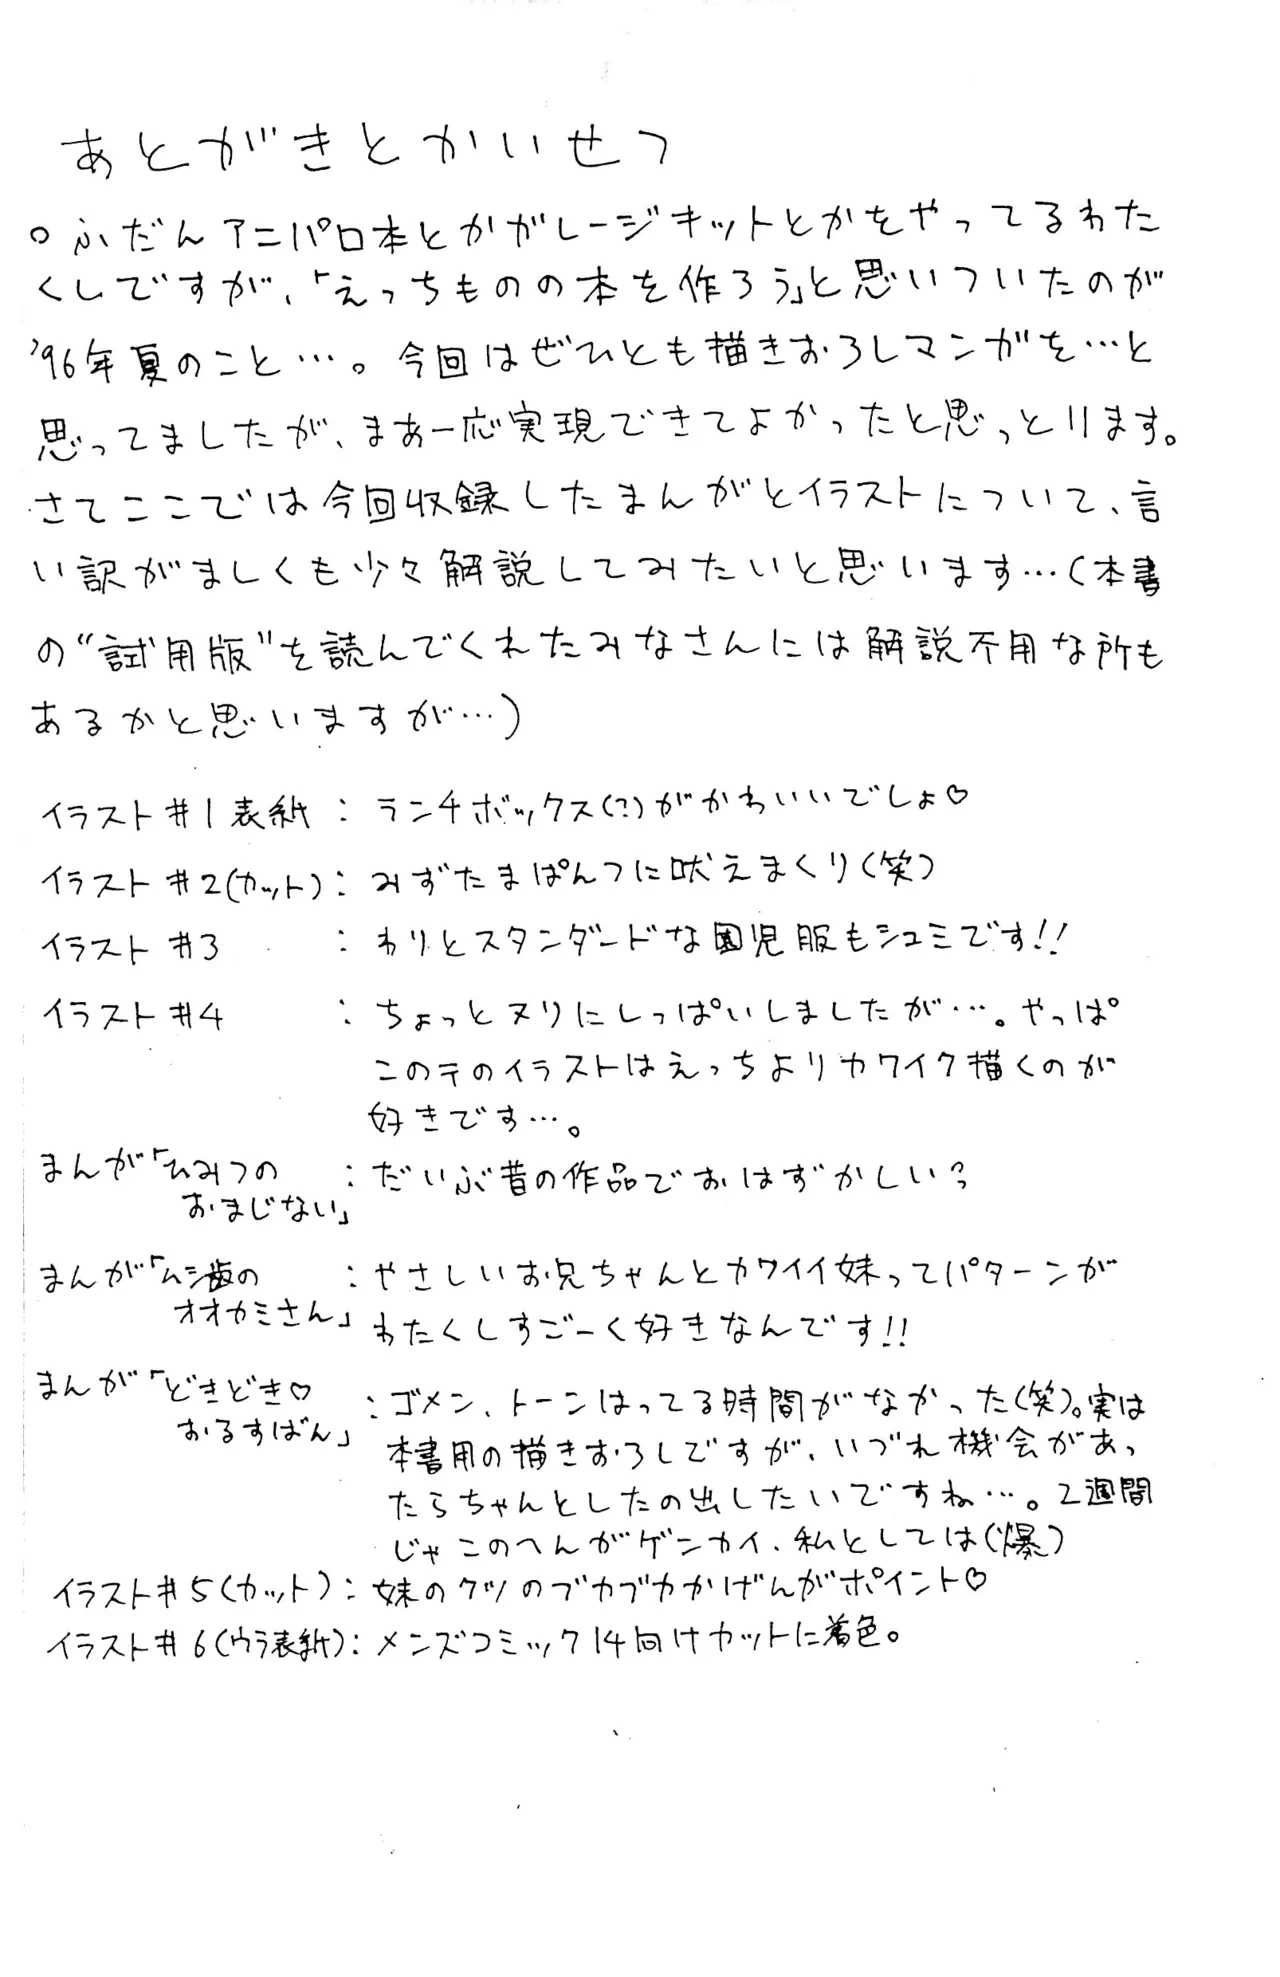 あとがきとかいせつ
○ふだんアニパロ本とかガレージキットとかをやってるわた
くしですが、「えっちものの本を作ろう」と思いついたのが
'96年夏のこと…。今回はぜひとも描きおろしマンガを…と
思ってましたが、まあ一応実現できてよかったと思っとります。
さてここでは今回収録したまんがとイラストについて、言
い訳がましくも少々解説してみたいと思います…(本書
の"試用版"を読んでくれたみなさんには解説不用な所も
あるかと思いますが…)
イラスト#1表紙:ランチボックス(?)がかわいいでしょ♡
イラスト#2(カット):みずたまぱんつに吠えまくり(笑)
イラスト#3:わりとスタンダードな園児服もシュミです!!
イラスト#4:ちょっとヌリにしっぱいしましたが…。やっぱ
このテのイラストはえっちよりカワイク描くのが
好きです…。
まんが「ひみつの
おまじない」
:だいぶ昔の作品でおはずかしい?
まんが「ムシ歯の
オオカミさん」
:やさしいお兄ちゃんとカワイイ妹ってパターンが
わたくしすごーく好きなんです!!
まんが「どきどき♡
おるすばん」
:ゴメン、トーンはってる時間がなかった(笑)。実は
本書用の描きおろしですが、いづれ機会があっ
たらちゃんとしたの出したいですね…。2週間
じゃこのへんがゲンカイ、私としては(爆)
イラスト#5(カット):妹のクツのブカブカかげんがポイント♡
イラスト#6(ウラ表紙):メンズコミック14向けカットに着色。